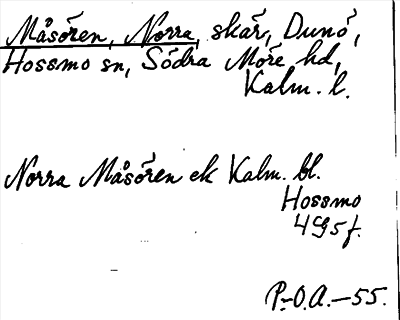 Måsören, Norra, skär, Dunö,
Hossmo sn, Södra Möre hd,
Kalm. l.
Norra Måsören ek Kalm. bl.
Hossmo
4 G5f.
P.-O.A.—55.